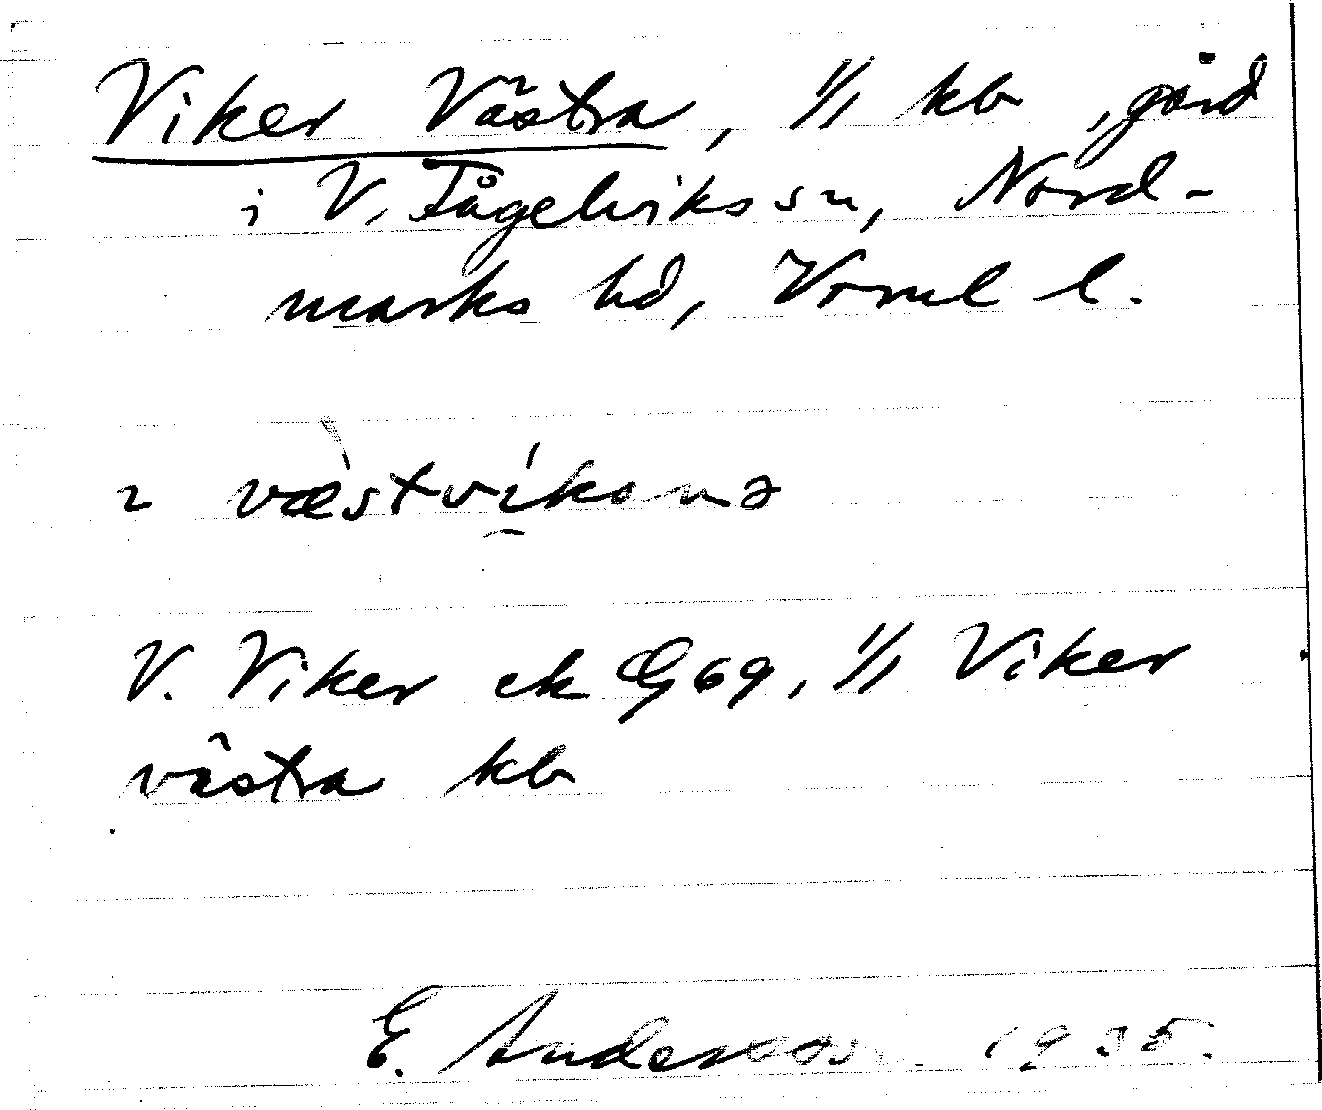 Viker Västra, 1/1 kb, gård
i V. Fågelviks sn, Nord-
marks hd, Verml l.
V. Viker ek G69, 1/1 Viker
västra kb
E. Andersson 1935.